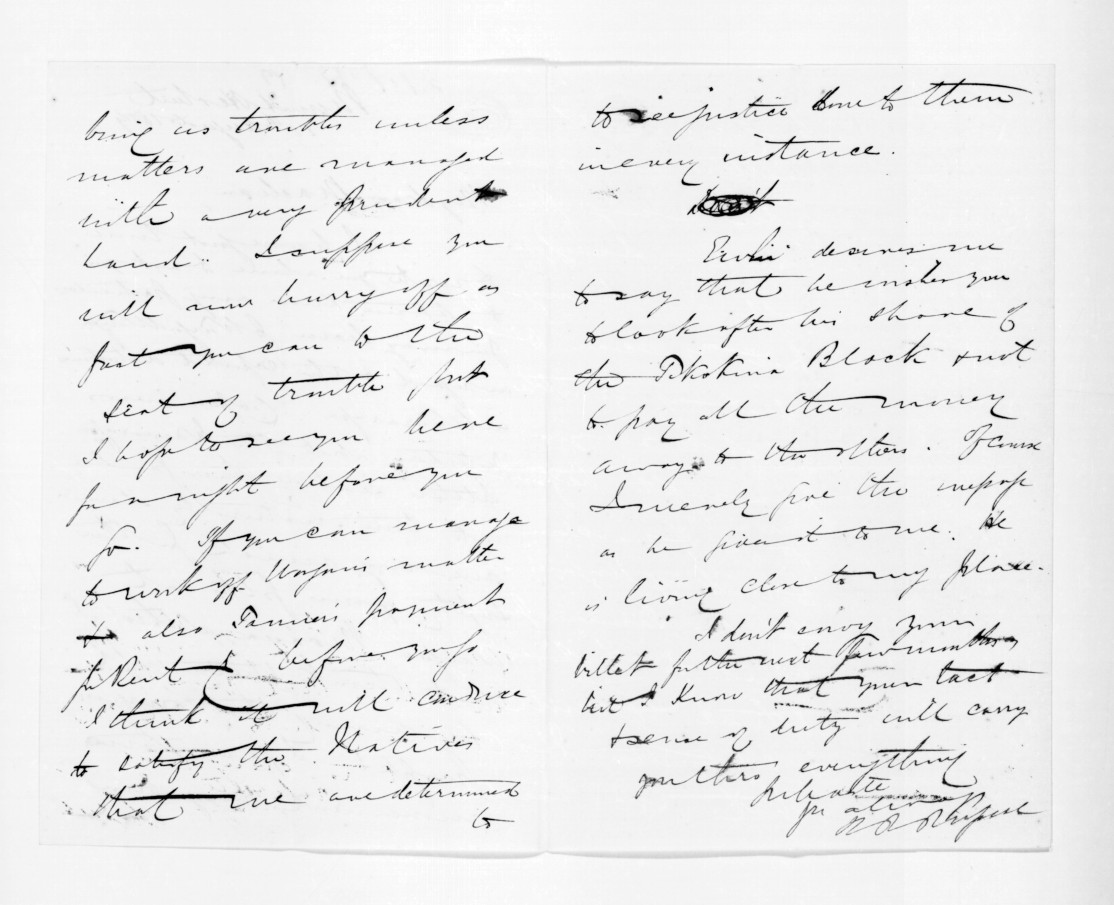 bring us troubles unless
matters are managed
with a very prudent
hand. I suppose you
will now hurry off as
fast you can to the
seat of trouble but
I hope to see you here
for a night before you
go. If you can manage
to work off matter
also payment
for Rent before you go
I think it will conduce
to satisfy the Natives
that we are determined
to
to see justice done to them
in every instance.
desires me
to say that he wishes you
to look after his share of
the Block & not
to pay all the money
away to the others. Of course
I merely give the message
as he gives it to me. He
is living close to my place.
I don't envy your
billet for the next few months
but I know that your tact
& sense of duty will carry
you thro' everything